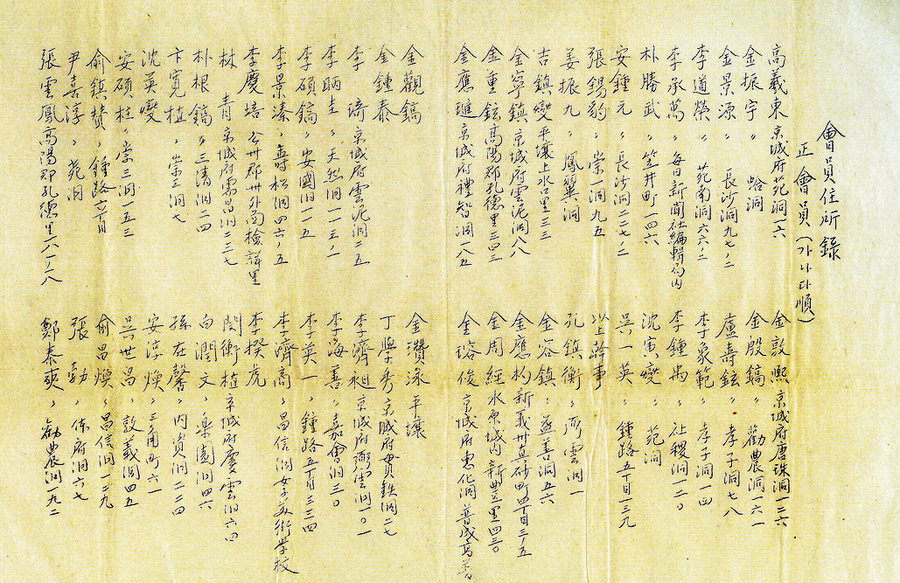 會員住所錄
正會員(가나다順)
高羲東 京城府苑洞一六
金敦熙 京城府唐珠洞一二六
金振宇 〃 蛤洞
金殷鎬 〃 勸農洞一六一
金景源 〃 長沙洞九七ノ二
盧壽鉉 〃 孝子洞七八
李道榮 〃 苑南洞六六ノ二
李象範 〃 孝子洞一四
李承萬 〃 每日新聞社編輯局內
李鍾禹 〃 社稷洞一二〇
朴勝武 〃 笠井町一四六
沈寅燮 〃 苑洞
安鍾元 〃 長沙洞二二七ノ二
吳一英 〃 鍾路五丁目一三九
張錫豹 〃 崇一洞九五
以上幹事
姜振九 〃 鳳翼洞
孔鎮衡 〃 靑雲洞一
吉鎮燮 平壤上水口里三三
金容鎮 〃 慈善洞五六
金寧鎮 京城府雲泥洞八八
金應杓 新義州眞砂町四丁目三ノ五
金重鉉 高陽郡孔德里三四三
金周經 水原城內新豊里四三〇
金應璡 京城府禮智洞一八五
金瑢俊 京城府惠化洞普成高普
金觀鎬
金瓚泳 平壤
金鍾泰
丁學秀 京城府貫鐵洞二七
李琦 京城府雲泥洞二五
李濟昶 京城府需雲洞一〇一
李昞圭 〃 天然洞一一三ノ一
李海善 〃 嘉會洞三〇
李碩鎬 〃 安國洞一一五
李英一 〃 鍾路五丁目三三四
李景溱 〃 壽松洞四六ノ五
李濟商 〃 昌信洞女子美術學校
李慶培 公州郡州外面檢詳里
李揆虎
林靑 京城府需昌洞二三七
閔衡植 京城府慶雲洞六四
朴根鎬 〃 三淸洞二四
白潤文 〃 樂園洞四六
卞寬植 〃 崇三洞七
孫在馨 〃 內資洞一三四
沈英燮
安淳煥 〃 三角町六一
安碩柱 〃 崇三洞一五三
吳世昌 〃 敦義洞四五
俞鎮贊 〃 鍾路六丁目
俞昌煥 〃 昌信洞一二九
尹喜淳 〃 苑洞
張勃 〃 体府洞六七
張雲鳳 高陽郡孔德里一八一ノ八
鄭泰奭 〃 勸農洞九二